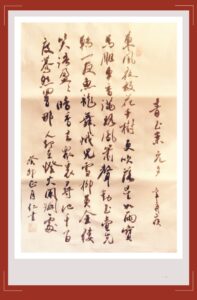 青玉案元夕
東風夜放花千樹更吹落星如雨寶
馬雕車香滿路鳳簫聲動玉壺光
轉一夜魚龍舞蛾兒雪柳黃金縷
笑語盈盈暗香去眾裏尋他千百
度驀然回首那人卻在燈火闌珊處
癸卯正月仁書